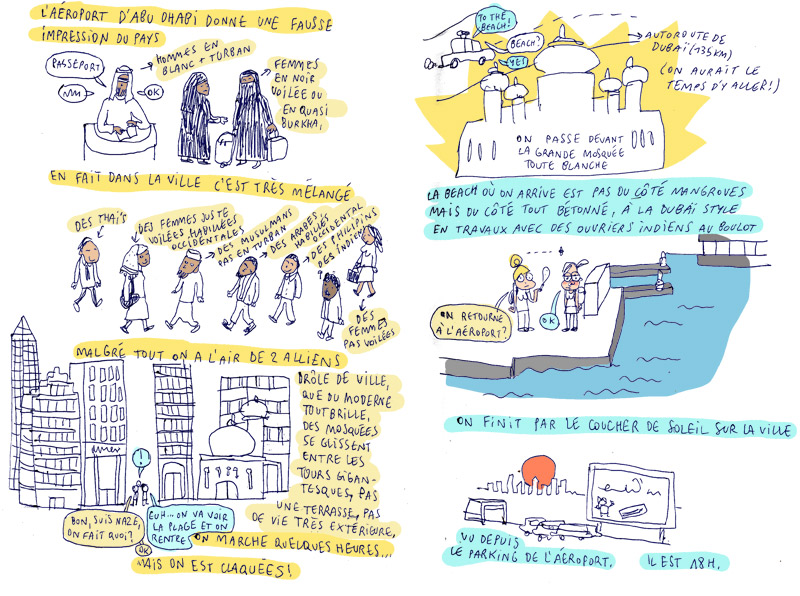 L'AÉROPORT D'ABU DHABI DONNE UNE FAUSSE
IMPRESSION DU PAYS
PASSEPORT
OK
HOMMES EN
BLANC + TURBAN
FEMMES
EN NOIR
VOILÉE OU
EN QUASI
BURKHA.
EN FAIT DANS LA VILLE C'EST TRÈS MÉLANGÉ
DES THAÏS
DES FEMMES JUSTE
VOILÉES HABILLÉES
OCCIDENTALES
DES MUSULMANS
PAS EN TURBAN
DES ARABES
HABILLÉS
OCCIDENTAL
DES PHILIPINS
DES INDIENS
DES
FEMMES
PAS VOILÉES
MALGRÉ TOUT ON A L'AIR DE 2 ALLIENS
DRÔLE DE VILLE,
QUE DU MODERNE
TOUT BRILLE,
DES MOSQUÉES
SE GLISSENT
ENTRE LES
TOURS GIGAN-
TESQUES, PAS
UNE TERRASSE, PAS
DE VIE TRÈS EXTÉRIEURE,
!
BON, SUIS NAZE,
ON FAIT QUOI?
EUH... ON VA VOIR
LA PLAGE ET ON
RENTRE
OK
ON MARCHE QUELQUES HEURES...
MAIS ON EST CLAQUÉES!
TO THE
BEACH!
BEACH?
YES!
AUTOROUTE DE
DUBAI (135KM)
(ON AURAIT LE
TEMPS D'Y ALLER!)
ON PASSE DEVANT
LA GRANDE MOSQUÉE
TOUTE BLANCHE
LA BEACH OÙ ON ARRIVE EST PAS DU CÔTÉ MANGROVES
MAIS DU CÔTÉ TOUT BÉTONNÉ, À LA DUBAÏ STYLE
EN TRAVAUX AVEC DES OUVRIERS INDIENS AU BOULOT
ON RETOURNE
À L'AÉROPORT?
OK
ON FINIT PAR LE COUCHER DE SOLEIL SUR LA VILLE
VU DEPUIS
LE PARKING DE L'AÉROPORT.
IL EST 18H.